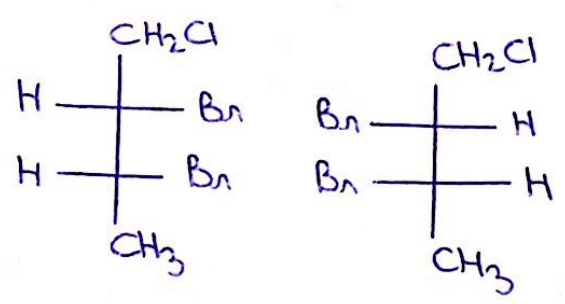 CH2Cl
H Br
H Br
CH3
CH2Cl
Br H
Br H
CH3